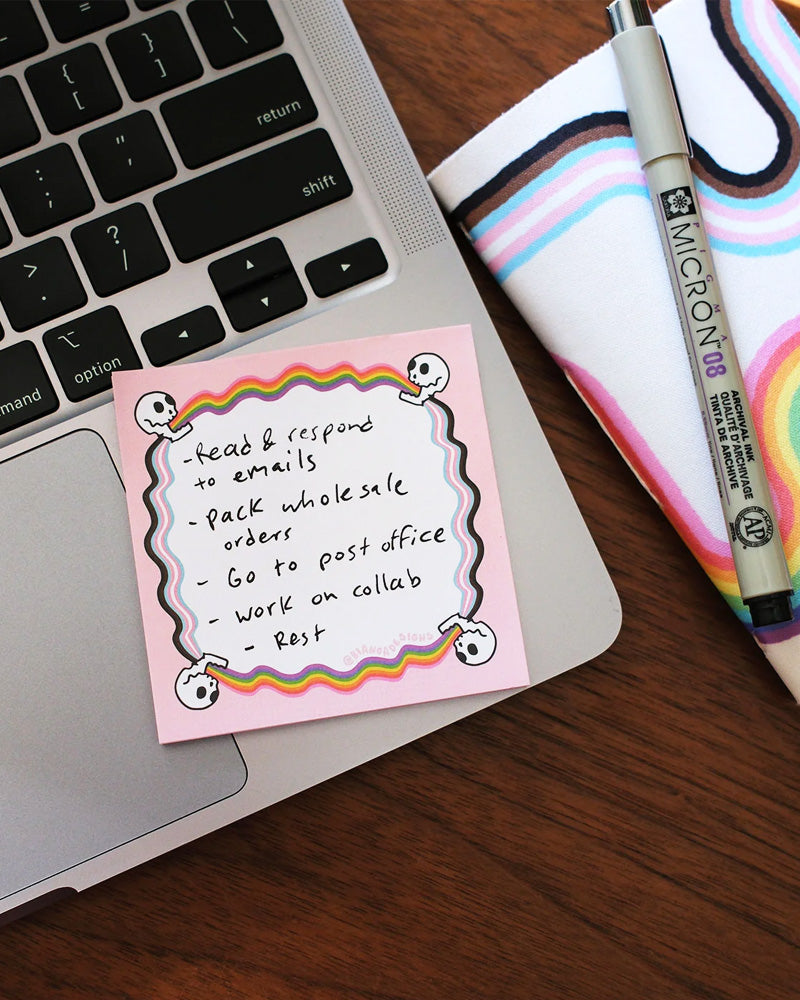 {
[
}
]
|
\
return
"
'
:
;
shift
?
/
>
.
option
mand
- Read & respond
to emails
- pack wholesale
orders
- Go to post office
- work on collab
- Rest
@BIANCADESIGNS
SAKURA
PIGMA
MICRON™ 08
ARCHIVAL INK
QUALITÉ D'ARCHIVAGE
TINTA DE ARCHIVE
AP